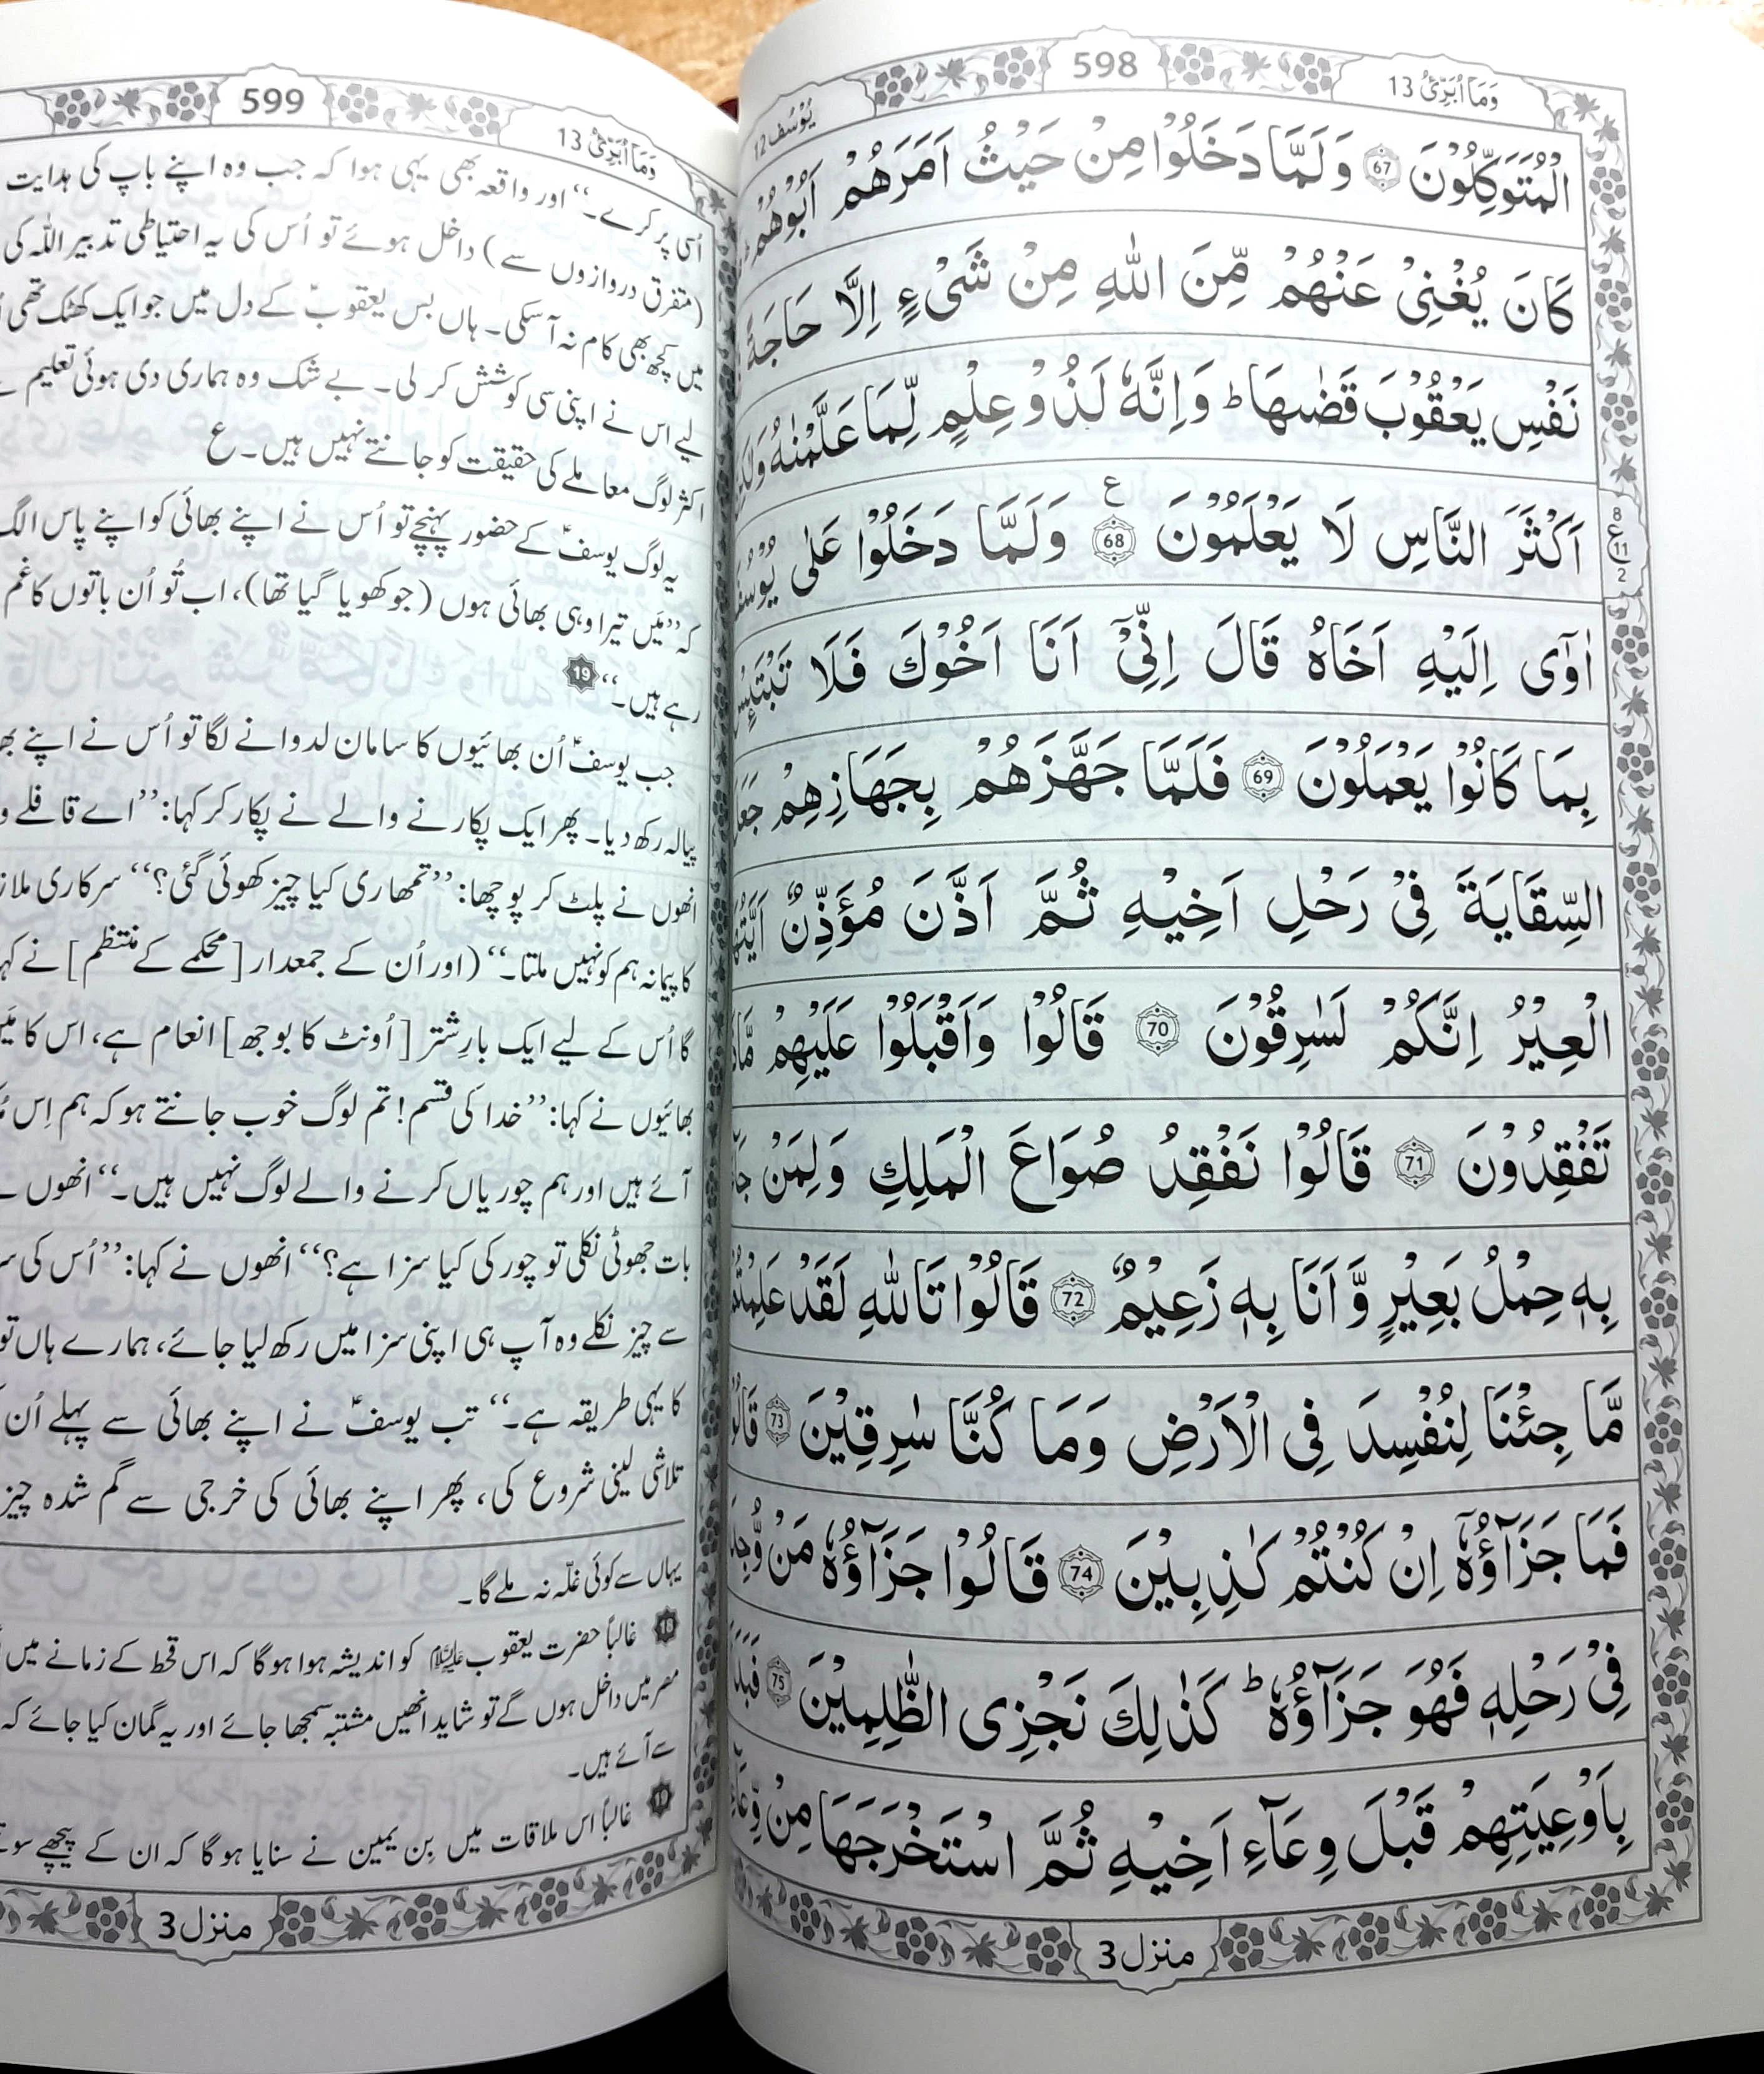 وَمَآ اُبَرِّئُ 13
598
یُوْسُف 12
الْمُتَوَكِّلُوْنَ 67 وَلَمَّا دَخَلُوْا مِنْ حَیْثُ اَمَرَهُمْ اَبُوْهُمْ
كَانَ یُغْنِیْ عَنْهُمْ مِّنَ اللّٰهِ مِنْ شَیْءٍ اِلَّا حَاجَةً
نَفْسِ یَعْقُوْبَ قَضٰىهَا ؕ وَاِنَّهٗ لَذُوْ عِلْمٍ لِّمَا عَلَّمْنٰهُ
اَكْثَرَ النَّاسِ لَا یَعْلَمُوْنَ 68 ع وَلَمَّا دَخَلُوْا عَلٰى
8 ع 11 2
اٰوٰۤى اِلَیْهِ اَخَاهُ قَالَ اِنِّیْۤ اَنَا اَخُوْكَ فَلَا
بِمَا كَانُوْا یَعْمَلُوْنَ 69 فَلَمَّا جَهَّزَهُمْ بِجَهَازِهِمْ
السِّقَایَةَ فِیْ رَحْلِ اَخِیْهِ ثُمَّ اَذَّنَ مُؤَذِّنٌ
الْعِیْرُ اِنَّكُمْ لَسٰرِقُوْنَ 70 قَالُوْا وَاَقْبَلُوْا عَلَیْهِمْ
تَفْقِدُوْنَ 71 قَالُوْا نَفْقِدُ صُوَاعَ الْمَلِكِ وَلِمَنْ
بِهٖ حِمْلُ بَعِیْرٍ وَّاَنَا بِهٖ زَعِیْمٌ 72 قَالُوْا تَاللّٰهِ لَقَدْ
مَّا جِئْنَا لِنُفْسِدَ فِی الْاَرْضِ وَمَا كُنَّا سٰرِقِیْنَ 73
فَمَا جَزَآؤُهٗۤ اِنْ كُنْتُمْ كٰذِبِیْنَ 74 قَالُوْا جَزَآؤُهٗ مَنْ
فِیْ رَحْلِهٖ فَهُوَ جَزَآؤُهٗ ؕ كَذٰلِكَ نَجْزِی الظّٰلِمِیْنَ 75
بِاَوْعِیَتِهِمْ قَبْلَ وِعَآءِ اَخِیْهِ ثُمَّ اسْتَخْرَجَهَا مِنْ
منزل 3
وَمَآ اُبَرِّئُ 13
599
اُسی پر کرے۔‘‘ اور واقعہ بھی یہی ہوا کہ جب وہ اپنے باپ کی ہدایت
(متفرق دروازوں سے) داخل ہوئے تو اُس کی یہ احتیاطی تدبیر اللہ کی
میں کچھ بھی کام نہ آسکی۔ ہاں بس یعقوبؑ کے دل میں جو ایک کھٹک تھی
لیے اس نے اپنی سی کوشش کر لی۔ بے شک وہ ہماری دی ہوئی تعلیم
اکثر لوگ معاملے کی حقیقت کو جانتے نہیں ہیں۔ ع
یہ لوگ یوسفؑ کے حضور پہنچے تو اُس نے اپنے بھائی کو اپنے پاس الگ
کہ ’’مَیں تیرا وہی بھائی ہوں (جو کھویا گیا تھا)، اب تُو اُن باتوں کا غم
رہے ہیں۔‘‘ 19
جب یوسفؑ اُن بھائیوں کا سامان لدوانے لگا تو اُس نے اپنے
پیالہ رکھ دیا۔ پھر ایک پکارنے والے نے پکار کر کہا: ’’اے قافلے
انھوں نے پلٹ کر پوچھا: ’’تمھاری کیا چیز کھوئی گئی؟‘‘ سرکاری
کا پیمانہ ہم کو نہیں ملتا۔‘‘ (اور اُن کے جمعدار [محکمے کے منتظم] نے
گا اُس کے لیے ایک بارِ شتر [اُونٹ کا بوجھ] انعام ہے، اس کا
بھائیوں نے کہا: ’’خدا کی قسم! تم لوگ خوب جانتے ہو کہ ہم اِس
آئے ہیں اور ہم چوریاں کرنے والے لوگ نہیں ہیں۔‘‘ انھوں
بات جھوٹی نکلی تو چور کی کیا سزا ہے؟‘‘ انھوں نے کہا: ’’اُس کی
سے چیز نکلے وہ آپ ہی اپنی سزا میں رکھ لیا جائے، ہمارے ہاں تو
کا یہی طریقہ ہے۔‘‘ تب یوسفؑ نے اپنے بھائی سے پہلے اُن
تلاشی لینی شروع کی، پھر اپنے بھائی کی خرجی سے گم شدہ چیز
یہاں سے کوئی غلّہ نہ ملے گا۔
18 غالباً حضرت یعقوب علیہ السلام کو اندیشہ ہوا ہوگا کہ اس قحط کے زمانے میں
مصر میں داخل ہوں گے تو شاید انھیں مشتبہ سمجھا جائے اور یہ گمان کیا جائے کہ
سے آئے ہیں۔
19 غالباً اس ملاقات میں بِن یمین نے سنایا ہوگا کہ ان کے پیچھے
منزل 3